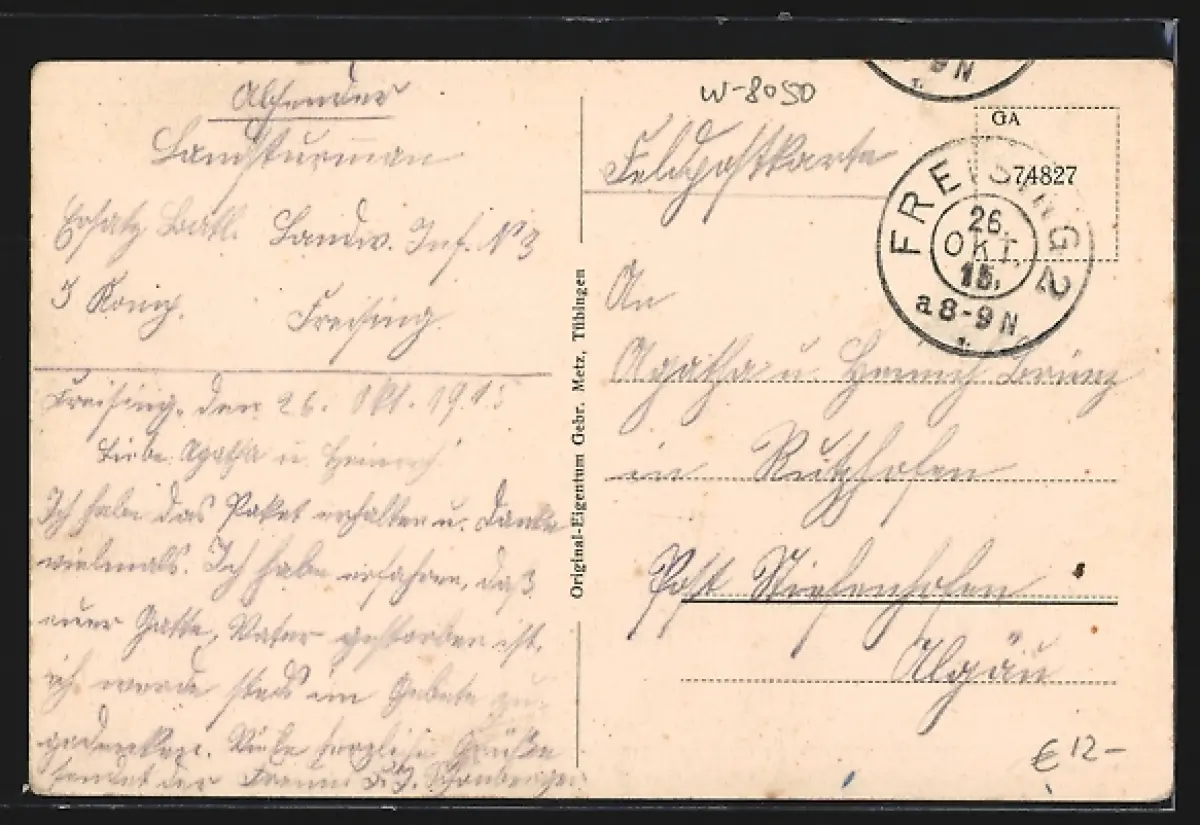 Absender
Landsturmman
Ersatz Batl. Landw. Inf. N 3
Komp. Freising
Freising, den 26. Okt. 1915
Liebe Agatha u. Heinrich
Ich habe das Paket erhalten u. danke
vielmals. Ich habe erfahren, daß
euer Gatte, Vater gestorben ist,
ich werde stets im Gebete
gedenken. Viele herzliche Grüße
sendet der
Original-Eigentum Gebr. Metz, Tübingen
W-8050
9N
Feldpostkarte
GA
74827
FREISING 2
26.
OKT.
15.
a8-9N.
An
Agatha u. Heinrich
in Rutzhofen
Post Stiefenhofen
Algäu
€ 12-